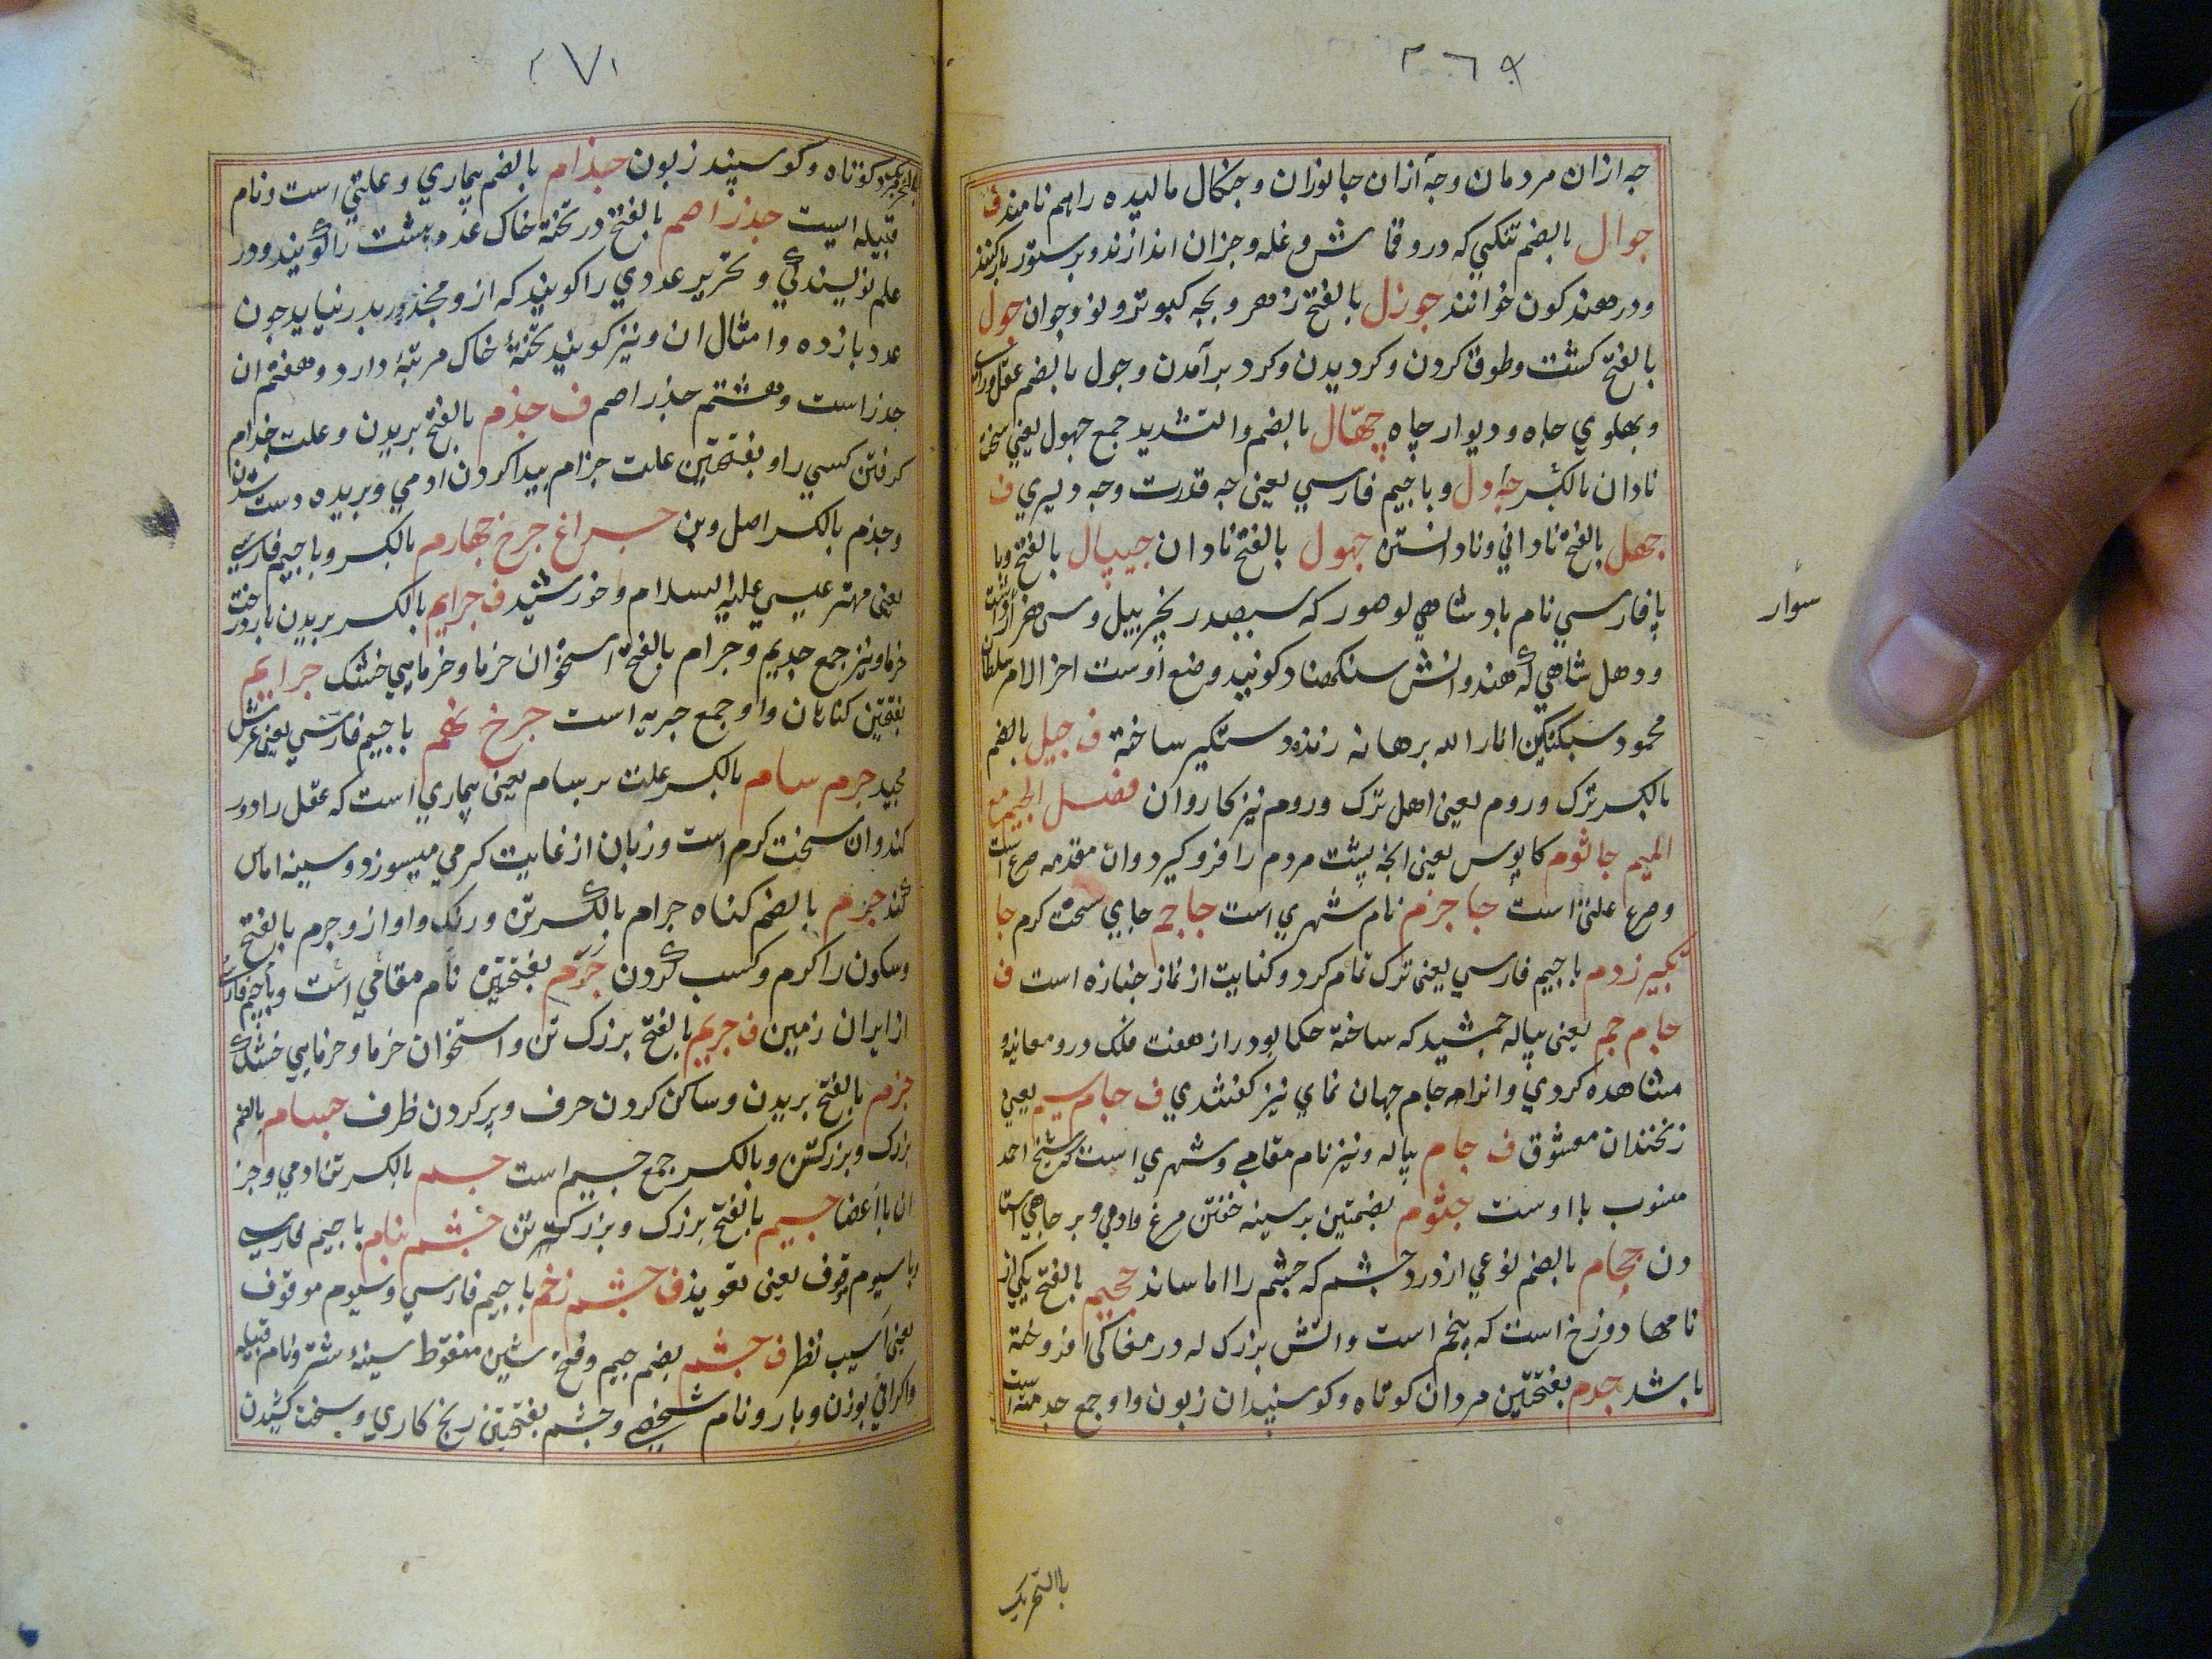 ۲۶۹
جه ازان مردمان وجه ازان جانوران و جنکال مالیده راهم نامند ف
جوال بالضم تنکی که درو قماش و غله و جزان اندازند و بر ستور بارکنند
و در هند کون خوانند جوزل بالفتح زهر و بچه کبوتر و نوجوان جول
بالفتح کشت و طوف کردن و کردیدن و کرد برآمدن و جول بالضم عقل
و پهلوی چاه و دیوار چاه جهّال بالضم والتشدید جمع جهول یعنی سخت
نادان بالکسر جه دل و با جیم فارسی یعنی چه قدرت وچه دلیری ف
جهل بالفتح نادانی و نادانستن جهول بالفتح نادان جیپال بالفتح وبا
پا فارسی نام بادشاهی لوهور که سیصد زنجیر پیل و سی هزار
سوار
و دهل شاهی که هندوانش سنکهناد کویند وضع اوست اخر الامر سلطان
محمود سبکتکین انار الله برهانه زنده دستکیر ساخته ف جیل بالضم
بالکسر ترک و روم یعنی اهل ترک و روم نیز کاروان فصل الجیم مع
المیم جاثوم کابوس یعنی انچه پشت مردم را فروکیرد وان مقدمه صرع است
و صرع علتی است جاجرم نام شهری است جاجم جای سخت کرم جا
تکبیر زدم با جیم فارسی یعنی ترک تمام کرد و کنایت از نماز جنازه است ف
جام جم یعنی پیاله جمشید که ساخته حکما بود راز هفت فلک درو معاینه و
مشاهده کردی وانرا جام جهان نمای نیز کفتندی ف جام سیم یعنی
زنخندان معشوق ف جام پیاله و نیز نام مقامی و شهری است که شیخ احمد
منسوب باوست جثوم بضمتین بر سینه خفتن مرغ و ادمی و بر جاهی استا
دن جحام بالضم نوعی از درد چشم که چشم را اماساند جحیم بالفتح یکی از
نامها دوزخ است که پنجم است و اتش بزرک که در مغاکی افروخته
باشد جدم بفتحتین مردان کوتاه و کوسپندان زبون واو جمع جدمه است
باالتحریک
۲۷۱
بالتحریک مرد کوتاه و کوسپند زبون جذام بالضم بیماری و علتی است و نام
قبیله ایست جذر اصم بالفتح در تخته خاک عدد بیست را کویند و در
علم نویسندکی و تحریر عددی را کویند که ازو مجذور بدر نیاید چون
عدد یازده و امثال ان و نیز کویند تخته خاک مرتبه دارد و هفتم ان
جذر است و هشتم جذر اصم ف جذم بالفتح بریدن و علت جذام
کرفتن کسی را و بفتحتین علت جزام پیدا کردن ادمی و بریده دست شدن
و جذم بالکسر اصل و بن چراغ چرخ چهارم بالکسر و با جیم فارسی
یعنی مهتر عیسی علیه السلام و خورشید ف جرایم بالکسر بریدن بار درخت
خرما و نیز جمع جریم و جرام بالفتح استخوان خرما و خرماهی خشک جرایم
بفتحتین کناهان واو جمع جریه است چرخ نهم با جیم فارسی یعنی عرش
مجید جرم سام بالکسر علت برسام یعنی بیماری است که عقل را دور
کند وان سخت کرم است و زبان از غایت کرمی میسوزد و سینه اماس
کند جرم بالضم کناه جرام بالکسر تن و رنک و اواز و جرم بالفتح
و سکون را کرم و کسب کردن جرّم بفتحتین نام مقامی است و با جیم فارسی
از ایران زمین ف جریم بالفتح بزرک تن و استخوان خرما و خرماهی خشک
جزم بالفتح بریدن و ساکن کردن حرف و پر کردن ظرف جسام بالضم
بزرک و بزرکتر و بالکسر جمع جسیم است جسم بالکسر تن ادمی و جز
ان با اعضا جسیم بالفتح بزرک و بزرکتر تن چشم بنام با جیم فارسی
و با سیوم موقوف یعنی تعویذ ف چشم زخم با جیم فارسی و سیوم موقوف
یعنی اسیب نظر ف جشم بضم جیم و فتح شین منقوط سینه شتر و نام قبیله
و اکرانی بوزن و بار و نام شخصی و جشم بفتحتین رنج کاری و سختی کشیدن